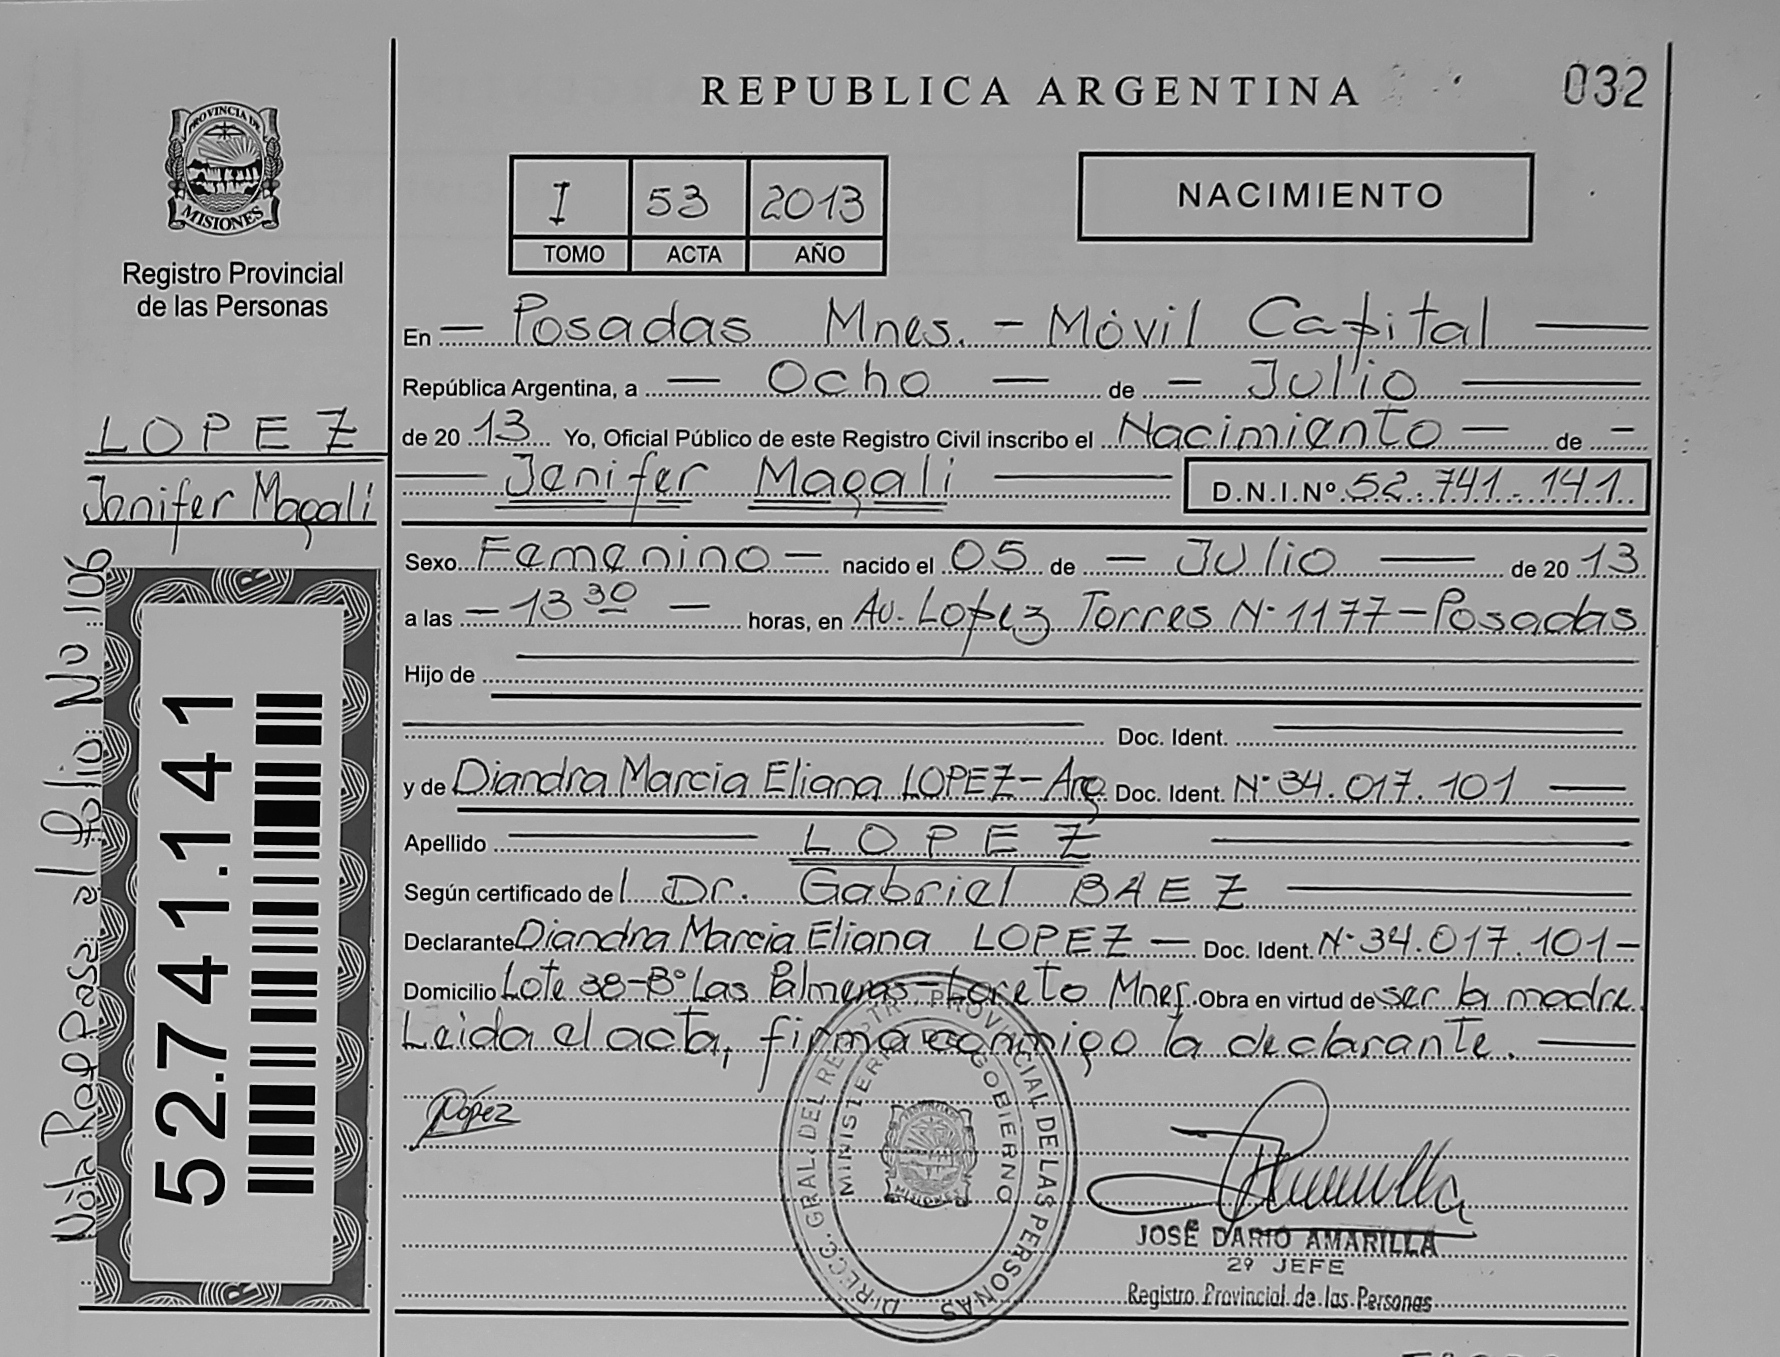 REPUBLICA ARGENTINA
032
PROVINCIA DE
MISIONES
Registro Provincial
de las Personas
I 53 2013
TOMO ACTA AÑO
NACIMIENTO
En — Posadas Mnes. — Móvil Capital —
República Argentina, a — Ocho — de — Julio —
de 20 13 Yo, Oficial Público de este Registro Civil inscribo el Nacimiento — de —
— Jenifer Magali — D.N.I.Nº 52.741.141
LOPEZ
Jenifer Magali
Sexo Femenino — nacido el 05 de — Julio — de 20 13
a las — 13 30 — horas, en Av. Lopez Torres N· 1177 — Posadas
Hijo de
Doc. Ident.
y de Diandra Marcia Eliana LOPEZ — Arg Doc. Ident. N· 34.017.101 —
Apellido — LOPEZ —
Según certificado del Dr. Gabriel BAEZ —
Declarante Diandra Marcia Eliana LOPEZ — Doc. Ident. N· 34.017.101 —
Domicilio Lote 38 - Bº Las Palmeras - Loreto Mnes. Obra en virtud de ser la madre.
Leida el acta, firma conmigo la declarante. —
Nota Ref Pasa al folio No 106
52.741.141
López
DIRECC. GRAL. DEL REGISTRO PROVINCIAL DE LAS PERSONAS
MINISTERIO DE GOBIERNO
MISIONES
JOSÉ DARIO AMARILLA
2º JEFE
Registro Provincial de las Personas